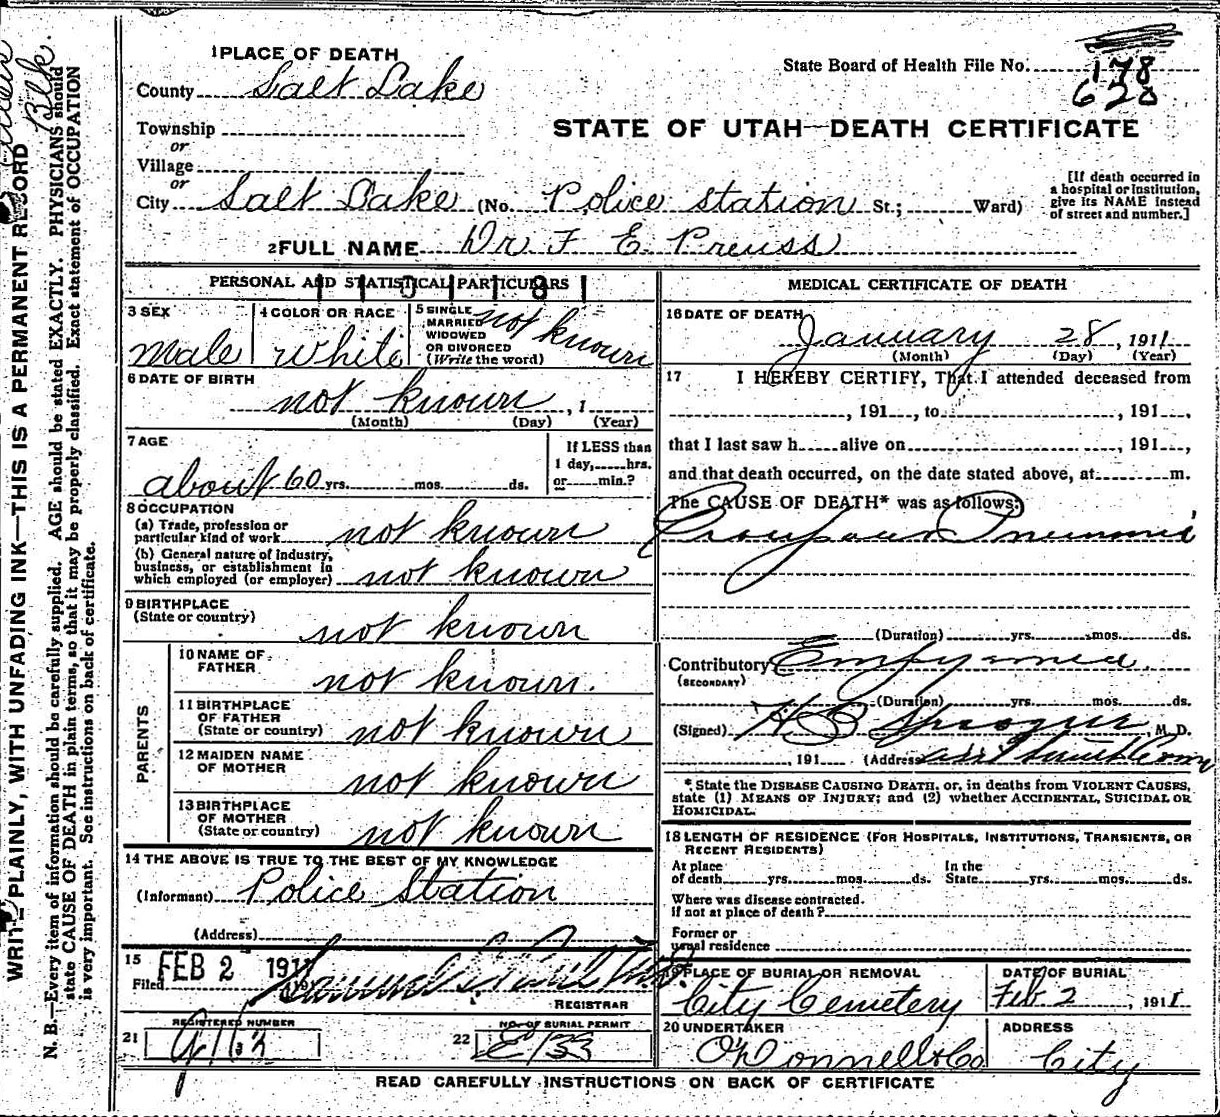 1 PLACE OF DEATH
County Salt Lake
Township
or
Village
or
City Salt Lake (No. Police station St.; Ward)
2 FULL NAME Dr F E Preuss
State Board of Health File No. 178
628
STATE OF UTAH—DEATH CERTIFICATE
[If death occurred in
a hospital or institution,
give its NAME instead
of street and number.]
WRITE PLAINLY, WITH UNFADING INK—THIS IS A PERMANENT RECORD
Blk.
N. B.—Every item of information should be carefully supplied. AGE should be stated EXACTLY. PHYSICIANS should
state CAUSE OF DEATH in plain terms, so that it may be properly classified. Exact statement of OCCUPATION
is very important. See instructions on back of certificate.
PERSONAL AND STATISTICAL PARTICULARS
3 SEX
Male
4 COLOR OR RACE
White
5 SINGLE
MARRIED
WIDOWED
OR DIVORCED
(Write the word)
not known
6 DATE OF BIRTH
not known, 1
(Month) (Day) (Year)
7 AGE
about 60 yrs. mos. ds.
If LESS than
1 day, hrs.
or min.?
8 OCCUPATION
(a) Trade, profession or
particular kind of work not known
(b) General nature of industry,
business, or establishment in
which employed (or employer) not known
9 BIRTHPLACE
(State or country)
not known
PARENTS
10 NAME OF
FATHER
not known.
11 BIRTHPLACE
OF FATHER
(State or country) not known
12 MAIDEN NAME
OF MOTHER
not known
13 BIRTHPLACE
OF MOTHER
(State or country) not known
14 THE ABOVE IS TRUE TO THE BEST OF MY KNOWLEDGE
(Informant) Police Station
(Address)
15
Filed FEB 2 1911
REGISTRAR
21 REGISTERED NUMBER
22 NO. OF BURIAL PERMIT
E133
MEDICAL CERTIFICATE OF DEATH
16 DATE OF DEATH
January 28, 1911
(Month) (Day) (Year)
17 I HEREBY CERTIFY, That I attended deceased from
, 191 , to , 191 ,
that I last saw h alive on , 191 ,
and that death occurred, on the date stated above, at m.
The CAUSE OF DEATH* was as follows:
Croupous Pneumonia
(Duration) yrs. mos. ds.
Contributory Empyemia
(SECONDARY)
(Duration) yrs. mos. ds.
(Signed) H B Sprague, M. D.
, 191 (Address)
*State the DISEASE CAUSING DEATH, or, in deaths from VIOLENT CAUSES,
state (1) MEANS OF INJURY; and (2) whether ACCIDENTAL, SUICIDAL OR
HOMICIDAL.
18 LENGTH OF RESIDENCE (FOR HOSPITALS, INSTITUTIONS, TRANSIENTS, OR
RECENT RESIDENTS)
At place
of death yrs. mos. ds.
In the
State yrs. mos. ds.
Where was disease contracted.
if not at place of death?
Former or
usual residence
19 PLACE OF BURIAL OR REMOVAL
City Cemetery
DATE OF BURIAL
Feb. 2, 1911
20 UNDERTAKER
O'Donnell & Co
ADDRESS
City
READ CAREFULLY INSTRUCTIONS ON BACK OF CERTIFICATE